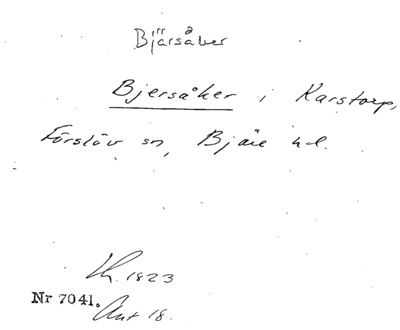 Bjärsåker
Bjersåker i Karstorp,
Förslöv sn, Bjäre hd.
Lh. 1823
Nr 7041.
Akt 18.